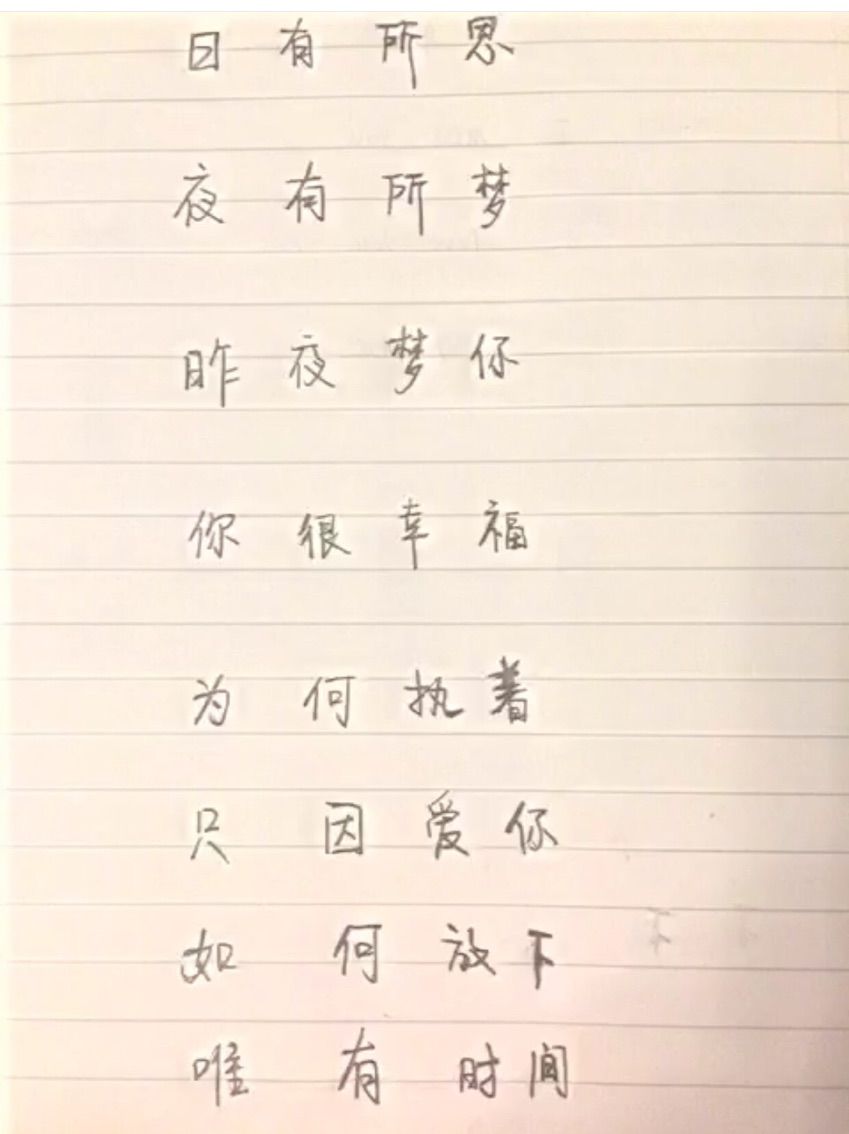 日有所思
夜有所梦
昨夜梦你
你很幸福
为何执着
只因爱你
如何放下
唯有时间